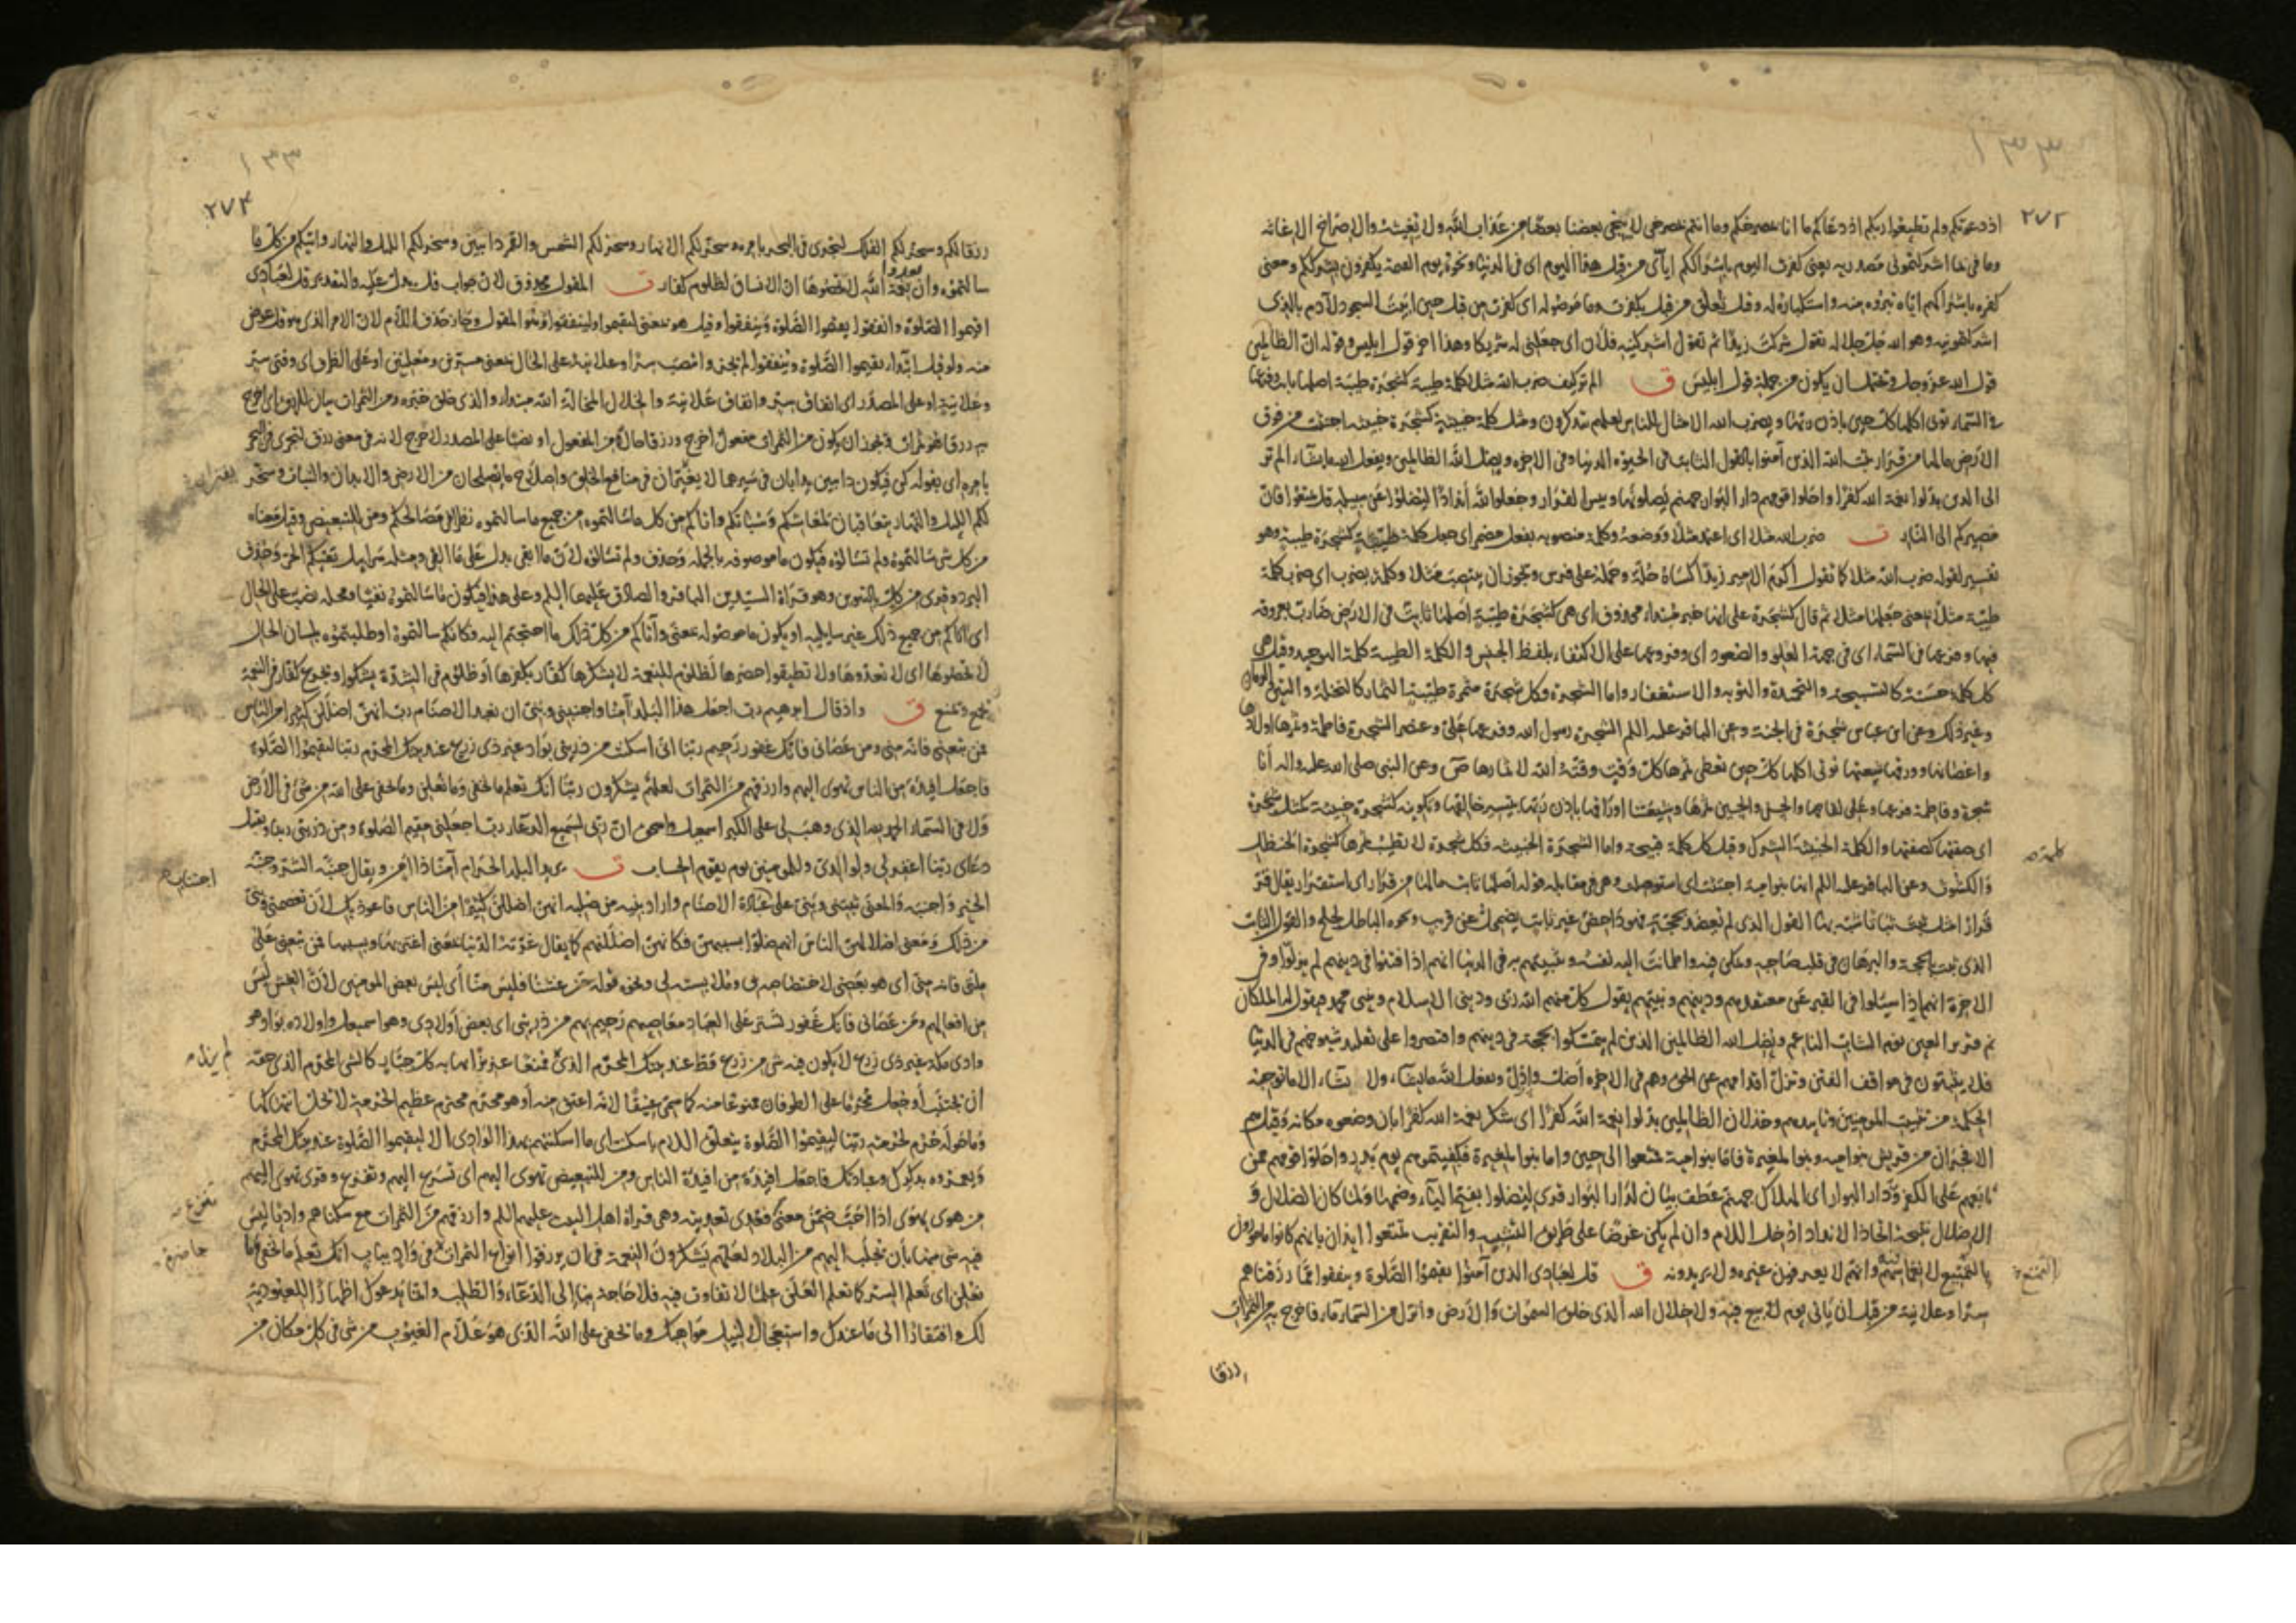 ٢٧٢
اذ دعوتكم ولم تطيعوا ربكم اذ دعاكم ما انا بمصرخكم وما انتم بمصرخي لا ينجي بعضنا بعضا من عذاب الله ولا يغيثه والاصراخ الاغاثة
وما في بما اشركتموني مصدرية يعني كفرت اليوم باشراككم اياي من قبل هذا اليوم اي في الدنيا ونحوه يوم القيمة يكفرون بشرككم ومعنى
كفره باشراكهم اياه تبرؤه منه واستنكاره له وقيل تعلق من قبل بكفرت وما موصولة اي كفرت من قبل حين ابيت السجود لآدم بالذي
اشركتمونيه وهو الله جل جلاله تقول شركت زيدا ثم تقول اشركنيه فلان اي جعلني له شريكا وهذا اخر قول ابليس وقوله ان الظالمين
قول الله عز وجل ويحتمل ان يكون من جملة قول ابليس ق الم تر كيف ضرب الله مثلا كلمة طيبة كشجرة طيبة اصلها ثابت وفرعها
في السماء تؤتي اكلها كل حين باذن ربها ويضرب الله الامثال للناس لعلهم يتذكرون ومثل كلمة خبيثة كشجرة خبيثة اجتثت من فوق
الارض ما لها من قرار يثبت الله الذين آمنوا بالقول الثابت في الحيوة الدنيا وفي الاخرة ويضل الله الظالمين ويفعل الله ما يشاء الم تر
الى الذين بدلوا نعمة الله كفرا واحلوا قومهم دار البوار جهنم يصلونها وبئس القرار وجعلوا لله اندادا ليضلوا عن سبيله قل تمتعوا فان
مصيركم الى النار ت ضرب الله مثلا اي اعتمد مثلا ووضعه وكلمة منصوبة بفعل مضمر اي جعل كلمة طيبة كشجرة طيبة وهو
تفسير لقوله ضرب الله مثلا كما تقول اكرم الامير زيدا كساه حلة وحمله على فرس ويجوز ان ينتصب مثلا وكلمة بضرب اي ضرب كلمة
طيبة مثلا بمعنى جعلها مثلا ثم قال كشجرة على انها خبر مبتداء محذوف اي هي كشجرة طيبة اصلها ثابت في الارض ضارب بعروقه
فيها وفرعها في السماء اي في جهة العلو والصعود اي وفروعها على الاكتفاء بلفظ الجنس والكلمة الطيبة كلمة التوحيد وقيل هي
كل كلمة حسنة كالتسبيحة والتحميدة والتوبة والاستغفار واما الشجرة فكل شجرة مثمرة طيبة الثمار كالنخلة والتين والرمان
وغير ذلك وعن ابن عباس شجرة في الجنة وعن الباقر عليه السلم الشجرة رسول الله وفرعها علي وعنصر الشجرة فاطمة وثمرها اولادها
واغصانها وورقها شيعتها تؤتي اكلها كل حين تعطي ثمرها كل وقت وقته الله لاثمارها ص وعن النبي صلى الله عليه واله انا
شجرة وفاطمة فرعها وعلي لقاحها والحسن والحسين ثمرها وشيعتنا اوراقها باذن ربها بتيسير خالقها وتكوينه كشجرة خبيثة كمثل شجرة
اي صفتها كصفتها والكلمة الخبيثة الشرك وقيل كل كلمة قبيحة واما الشجرة الخبيثة فكل شجرة لا يطيب ثمرها كشجرة الحنظل
والكشوث وعن الباقر عليه السلم انها بنو امية اجتثت اي استوصلت وهي في مقابلة قوله اصلها ثابت ما لها من قرار اي استقرار يقال قر
الذي ثبت بالحجة والبرهان في قلب صاحبه وتمكن فيه واطمانت اليه نفسه وتثبيتهم به في الدنيا انهم اذا فتنوا في دينهم لم يزلوا وفي
الاخرة انهم اذا سئلوا في القبر عن معتقدهم ودينهم ونبيهم يقول كل منهم الله ربي وديني الاسلام ونبيي محمد فيقول له الملكان
نم قرير العين نوم الشاب الناعم ويضل الله الظالمين الذين لم يتمسكوا بحجة في دينهم واقتصروا على تقليد شيوخهم في الدنيا
فلا يثبتون في مواقف الفتن وتزل اقدامهم عن الحق وهم في الاخرة اضل واذل ويفعل الله ما يشاء ولا يشاء الا ما توجبه
الحكمة من تثبيت المومنين وتاييدهم وخذلان الظالمين بدلوا نعمة الله كفرا اي شكر نعمة الله كفرا بان وضعوه مكانه وقيل هم
الافجران من قريش بنو امية وبنو المغيرة فاما بنو امية فمتعوا الى حين واما بنو المغيرة فكفيتموهم يوم بدر واحلوا قومهم ممن
تابعهم على الكفر دار البوار اي الهلاك جهنم عطف بيان لدار البوار قرئ ليضلوا بفتح الياء وضمها ولما كان الضلال و
الاضلال نتيجة اتخاذ الانداد ادخل اللام وان لم يكن غرضا على طريق التشبيه والتقريب تمتعوا ايذان بانهم كانوا مامورون
بالتمتع لانغماسهم فيه وانهم لا يعرفون غيره ولا يريدونه ق قل لعبادي الذين آمنوا يقيموا الصلوة وينفقوا مما رزقناهم
سرا وعلانية من قبل ان ياتي يوم لا بيع فيه ولا خلال الله الذي خلق السموات والارض وانزل من السماء ماء فاخرج به من الثمرات
رزقا
١٣٣
٢٧٤
رزقا لكم وسخر لكم الفلك لتجري في البحر بامره وسخر لكم الانهار وسخر لكم الشمس والقمر دائبين وسخر لكم الليل والنهار واتيكم من كل ما
سالتموه وان تعدوا نعمة الله لا تحصوها ان الانسان لظلوم كفار ت المقول محذوف لان جواب قل يدل عليه والتقدير قل لعبادي
اقيموا الصلوة وانفقوا يقيموا الصلوة وينفقوا وقيل هو بمعنى ليقيموا ولينفقوا وهو المقول وجاز حذف اللام لان الامر الذي هو قل عوض
منه ولو قيل ابتداء يقيموا الصلوة وينفقوا لم يجز وانتصب سرا وعلانية على الحال بمعنى مسرين ومعلنين او على الظرف اي وقتي سر
وعلانية او على المصدر اي انفاق سر وانفاق علانية والخلال المخالة الله مبتداء والذي خلق خبره ومن الثمرات بيان للرزق اي اخرج
به رزقا هو ثمرات ويجوز ان يكون من الثمرات مفعول اخرج ورزقا حالا من المفعول او نصبا على المصدر لاخرج لانه في معنى رزق لتجري في البحر
بامره اي بقوله كن فيكون دائبين يدابان في سيرهما لا يفتران في منافع الخلق واصلاح ما يصلحان من الارض والابدان والنبات وسخر
لكم الليل والنهار يتعاقبان لمعاشكم وسباتكم واتاكم من كل ما سالتموه من جميع ما سالتموه نظرا في مصالحكم ومن للتبعيض وقيل معناه
من كل شئ سالتموه ولم تسالوه فيكون ما موصوفة بالجملة وحذف ولم تسالوه لان ما ابقى يدل على ما القى ومثله سرابيل تقيكم الحر وحذف
البرد وقرئ من كل بالتنوين وهو قراة السيدين الباقر والصادق عليهما السلم وعلى هذا فيكون ما سالتموه نفيا ومحله نصب على الحال
اي اتاكم من جميع ذلك غير سائليه او يكون ما موصولة بمعنى واتاكم من كل ذلك ما احتجتم اليه فكانكم سالتموه او طلبتموه بلسان الحال
لا تحصوها اي لا تعدوها ولا تطيقوا حصرها لظلوم للنعمة لا يشكرها كفار يكفرها او ظلوم في الشدة يشكوا ويجزع كفار في النعمة
يجمع ويمنع ق واذ قال ابرهيم رب اجعل هذا البلد آمنا واجنبني وبني ان نعبد الاصنام رب انهن اضللن كثيرا من الناس
فمن تبعني فانه مني ومن عصاني فانك غفور رحيم ربنا اني اسكنت من ذريتي بواد غير ذي زرع عند بيتك المحرم ربنا ليقيموا الصلوة
فاجعل افئدة من الناس تهوي اليهم وارزقهم من الثمرات لعلهم يشكرون ربنا انك تعلم ما نخفي وما نعلن وما يخفى على الله من شئ في الارض
ولا في السماء الحمد لله الذي وهب لي على الكبر اسمعيل واسحق ان ربي لسميع الدعاء رب اجعلني مقيم الصلوة ومن ذريتي ربنا وتقبل
دعاي ربنا اغفر لي ولوالدي وللمومنين يوم يقوم الحساب ت يريد البلد الحرام آمنا ذا امن ويقال جنبه الشر وجنبه
الخير واجنبه والمعنى ثبتني وبني على اجتناب عبادة الاصنام واراد بنيه من صلبه انهن اضللن كثيرا من الناس فاعوذ بك لان تعصمني وبني
من ذلك ومعنى اضلالهن الناس انهم ضلوا بسببهن فكانهن اضللنهم كما يقال غرته الدنيا بمعنى اغتر بها وبسببها فمن تبعني على
ملتي فانه مني اي هو بعضي لاختصاصه بي وملابسته لي ونحوه قوله من غشنا فليس منا اي ليس بعض المومنين لان الغش ليس
من افعالهم ومن عصاني فانك غفور تستر على العباد معاصيهم رحيم بهم من ذريتي اي بعض اولادي وهو اسمعيل واولاده بواد هو
وادي مكة غير ذي زرع لا يكون فيه شئ من زرع قط عند بيتك المحرم الذي لم يزل ممنعا عزيزا يهابه كل جبار كالشئ المحرم الذي حقه
ان يجتنب او جعل محرما على الطوفان ممنوعا منه كما سمي عتيقا لانه اعتق منه او هو محترم عظيم الحرمة لا تحل انتهاكها
وما حوله حرم لحرمته ربنا ليقيموا الصلوة يتعلق اللام باسكنت اي ما اسكنتهم بهذا الوادي الا ليقيموا الصلوة عند بيتك المحرم
ويعمروه بذكرك وعبادتك فاجعل افئدة من افئدة الناس ومن للتبعيض تهوي اليهم اي تسرع اليهم وتنزع وقرئ تهوى اليهم
من هوي يهوى اذا احب ضمن معنى تنزع فعدي تعديته وهي قراة اهل البيت عليهم السلم وارزقهم من الثمرات مع سكناهم واديا ليس
فيه شئ منها بان تجلب اليهم من البلاد لعلهم يشكرون النعمة في ان يرزقوا انواع الثمرات حاضرة في واد يباب انك تعلم ما نخفي وما
نعلن اي تعلم السر كما تعلم العلن علما لا تفاوت فيه فلا حاجة بنا الى الدعاء والطلب وانما ندعوك اظهارا للعبودية
لك وافتقارا الى ما عندك واستعجالا لنيل مواهبك وما يخفى على الله الذي هو علام الغيوب من شئ في كل مكان من